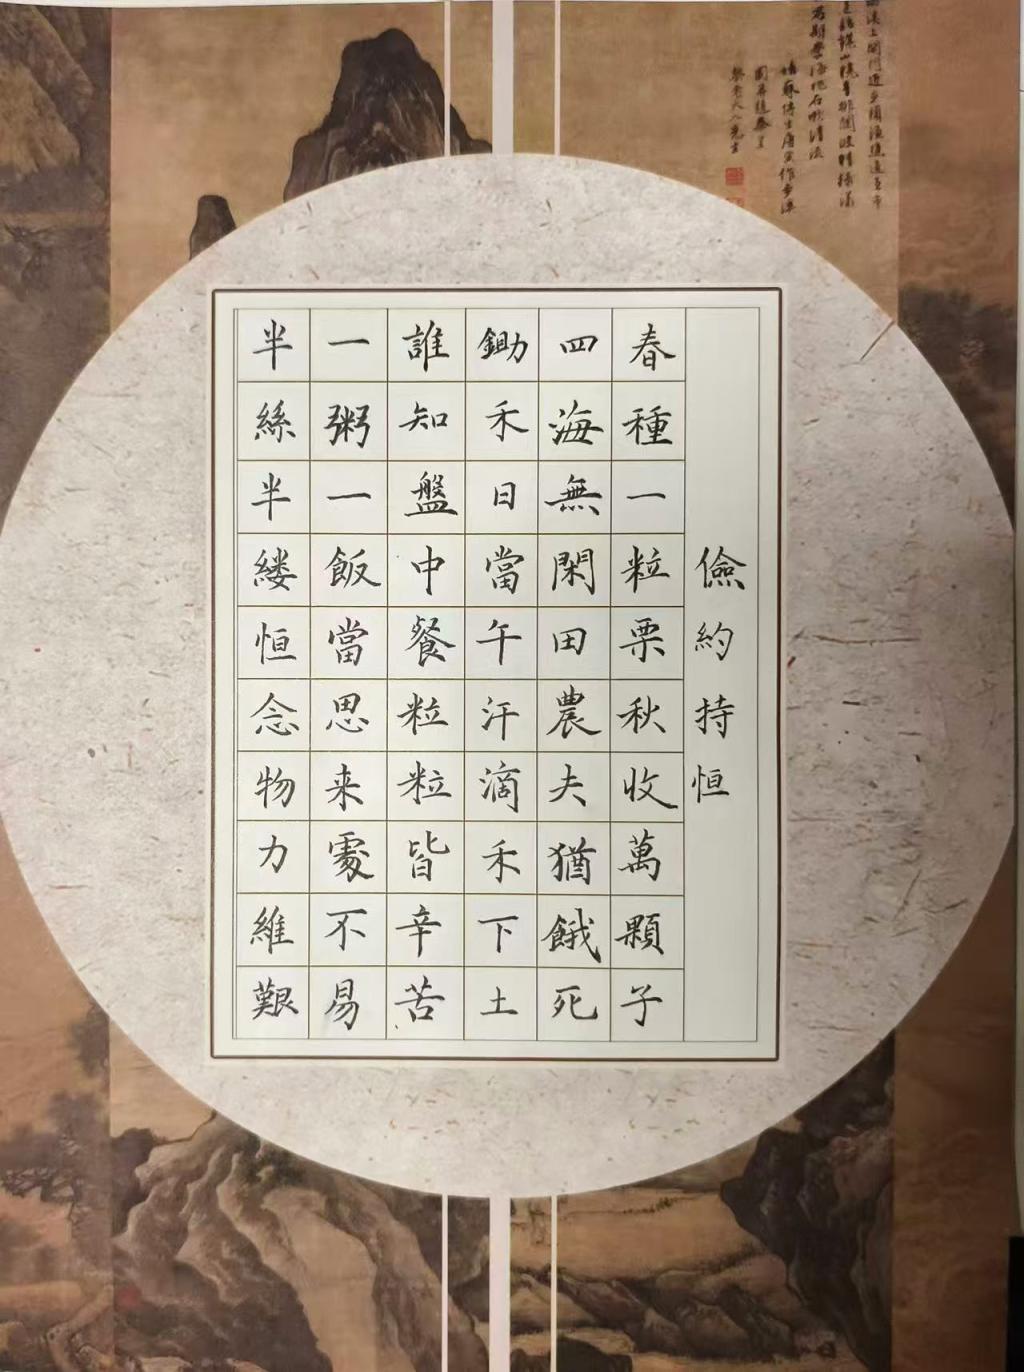 儉約持恒
春種一粒栗秋收萬顆子
四海無閑田農夫猶餓死
鋤禾日當午汗滴禾下土
誰知盤中餐粒粒皆辛苦
一粥一飯當思来處不易
半絲半縷恒念物力維艱